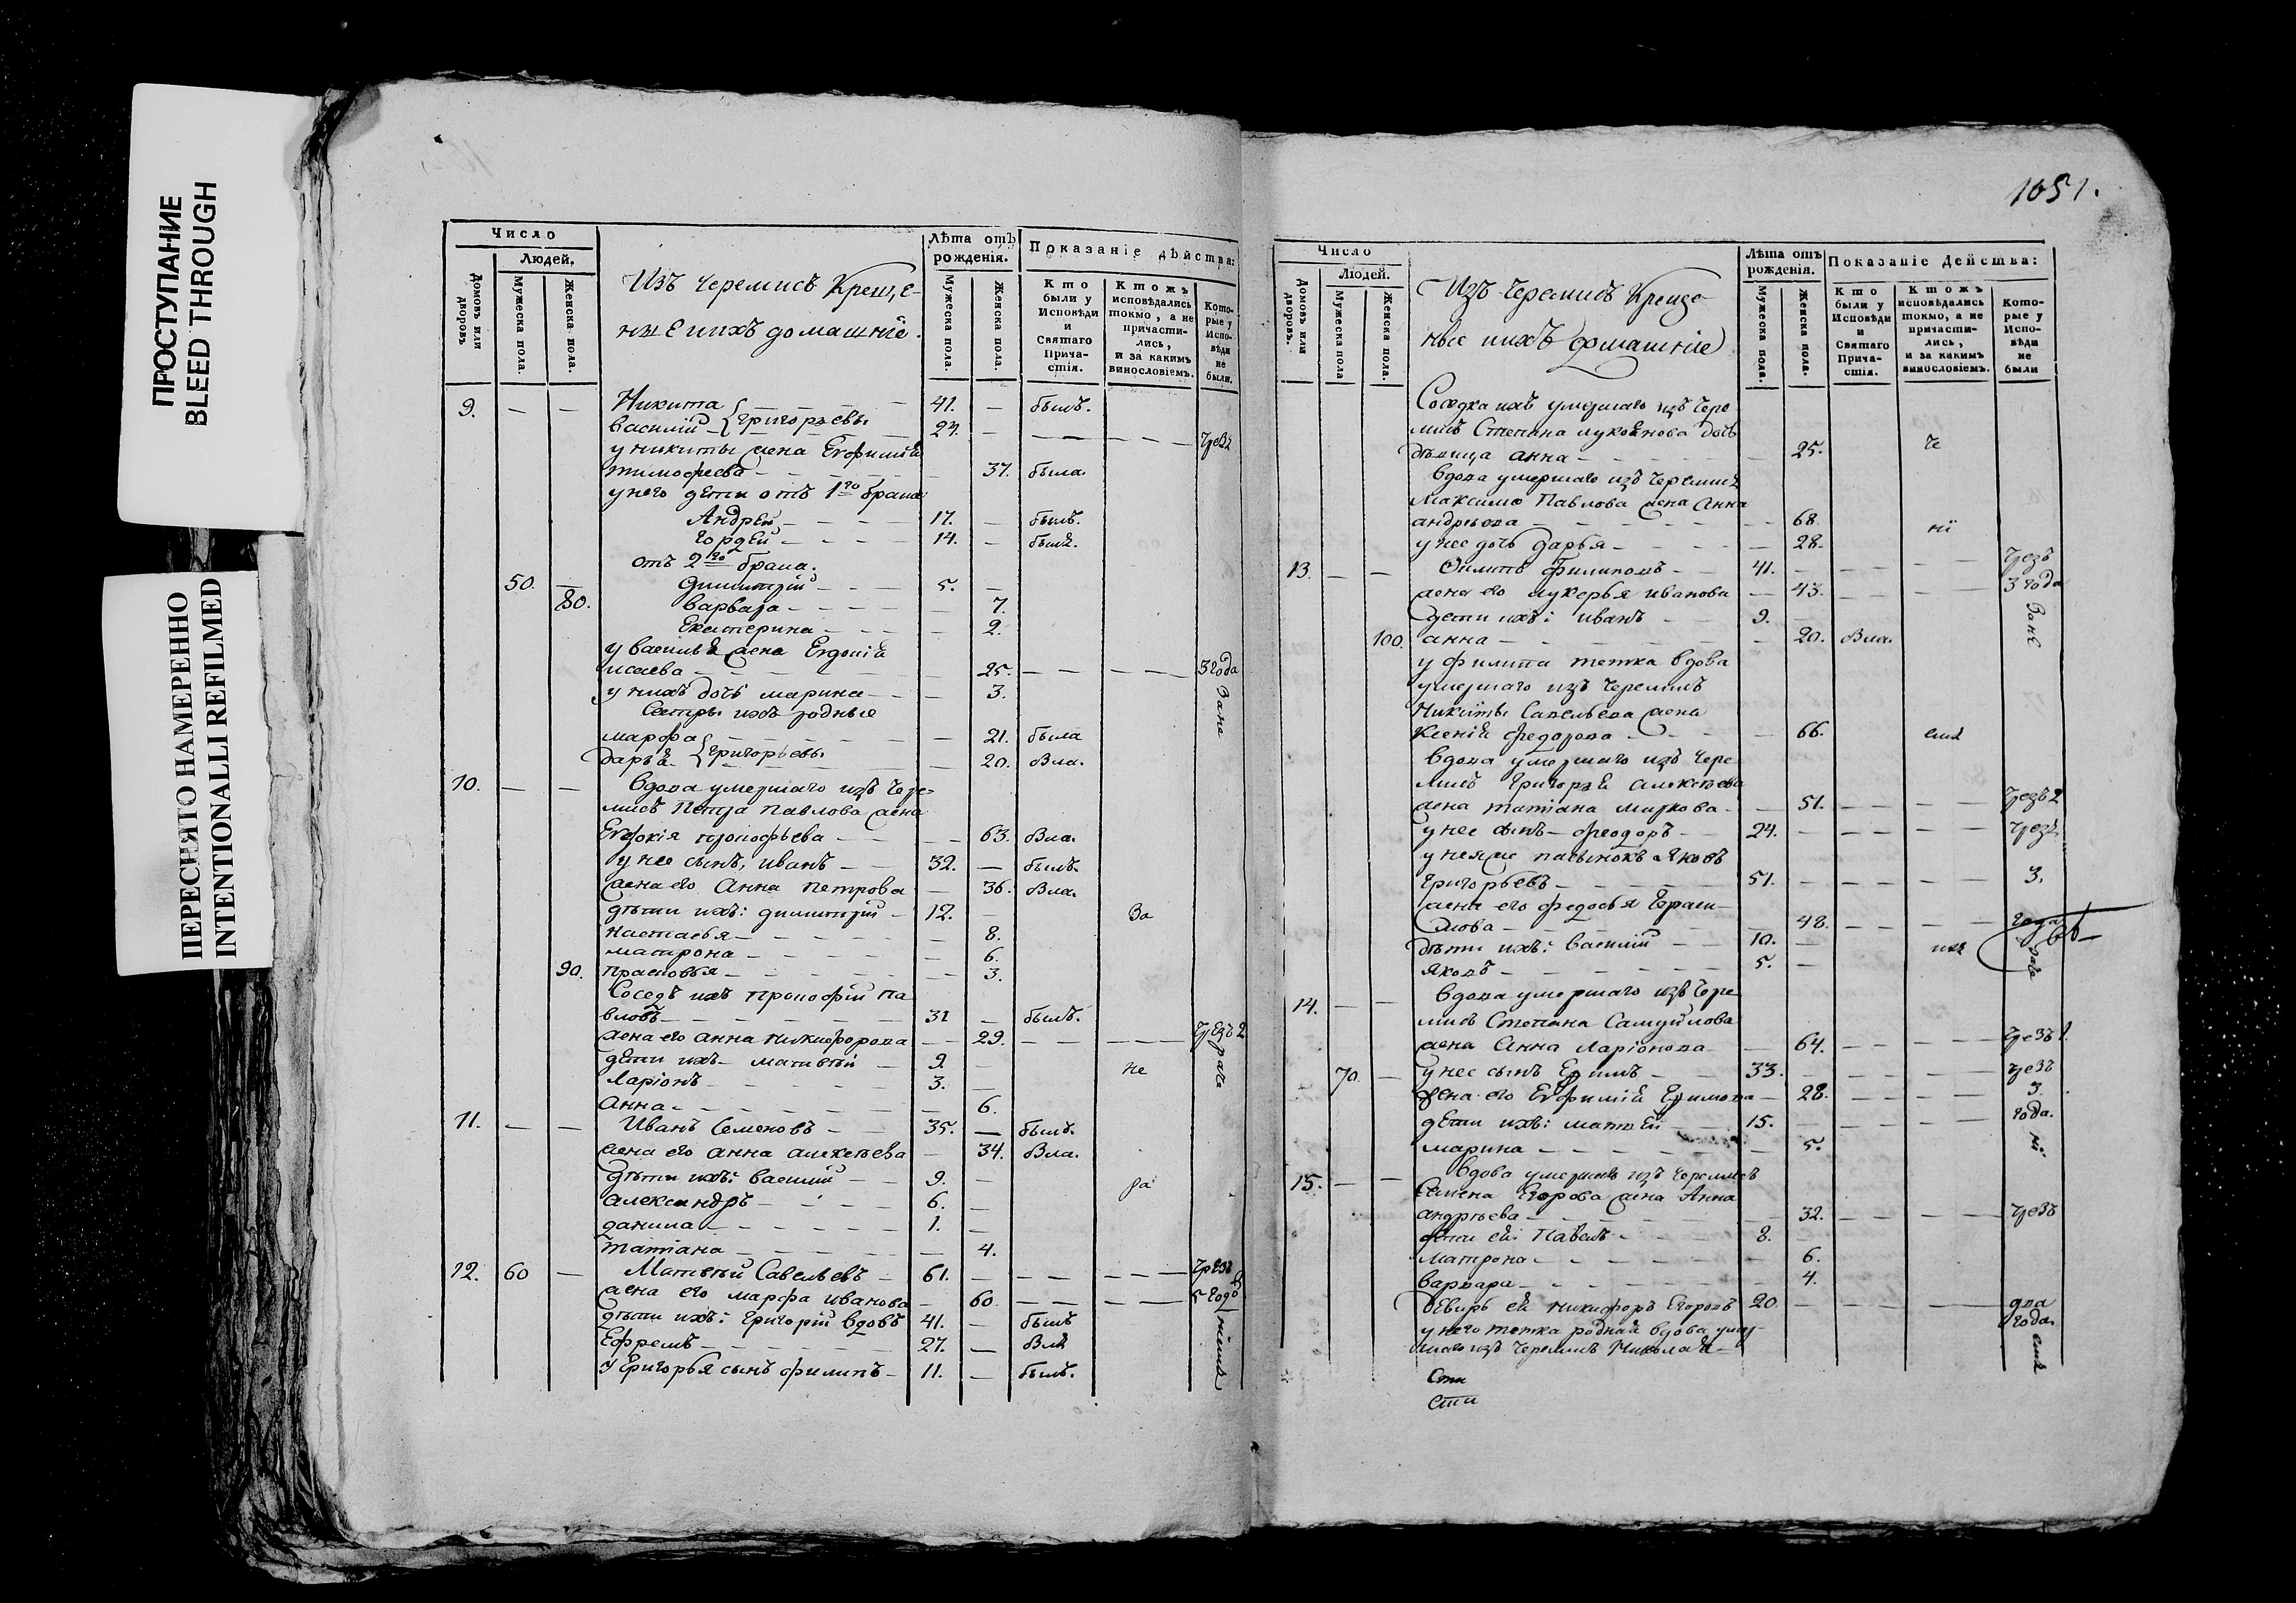 ПРОСТУПАНИЕ
BLEED THROUGH
ПЕРЕСНЯТО НАМЕРЕННО
INTENTIONALLI REFILMED
Число
Людей.
Домовъ или дворовъ.
Мужеска пола.
Женска пола.
Изъ Черемисъ Креще-
ныЕ ихъ домашнїе.
Лѣта отъ рожденія.
Мужеска пола.
Женска пола.
Показаніе дѣйства:
Кто были у Исповѣди и Святаго Причастія.
Ктожъ исповѣдались токмо, а не причастились, и за какимъ винословіемъ.
Которые у Исповѣди не были.
9. — — Никита 41. — былъ.
василій Григорьевы 24. — — — Чрезъ
у никиты жена Евфимія
тимофеева — 37. была.
у него дети отъ 1го брака
Андрей 17. — былъ.
Гордей 14. — былъ.
отъ 2го брака.
50. — димитрїй 5. —
80. варвара — 7.
Екатерина — 2.
у василья жена Евдокія
исаева — 25. — — 3 года
у нихъ дочь марина — 3.
Сестры ихъ родныя
марфа — 21. была
дарья Григорьевы — 20. Бла.
10. — — вдова умершаго изъ Чере-
мисъ Петра Павлова жена
Евдокія прокофьева — 63. Бла.
у нее сынъ, иванъ 32. — былъ.
жена его Анна петрова — 36. Бла.
дѣти ихъ: димитрїй 12. — За
настасья — 8.
матрона — 6.
90. прасковья — 3.
Соседъ ихъ прокофїй па
вловъ 31 — былъ.
жена его анна никифорова — 29. — — Чрезъ 2
дети ихъ матвѣй 9. — не
Ларіонъ 3. —
анна — 6.
11. — — Иванъ Семеновъ 35. — былъ.
жена его анна алексѣева — 34. Бла.
дѣти ихъ: василій 9. — ра
александръ 6. —
данила 1. —
татіана — 4.
12. 60 — Матвѣй Савельевъ 61. — — — Чрезъ
жена его марфа иванова — 60. — — 5 годо
дѣти ихъ: Григорїй вдовъ 41. — былъ
Ефремъ 27. — Блъ
У Григорья сынъ филипъ 11. — былъ.
1051.
Число
Людей.
Домовъ или дворовъ.
Мужеска пола
Женска пола.
Изъ Черемисъ Креще-
ные ихъ домашніе
Лѣта отъ рожденія.
Мужеска пола.
Женска пола.
Показаніе Действа:
Кто были у Исповѣди и Святаго Причастія.
Ктожъ исповѣдались токмо, а не причастились, и за какимъ винословіемъ.
Которые у Исповѣди не были
Соседка ихъ умершаго изъ Чере
мисъ Степана дочь
дѣвица анна — 25. Че
вдова умершаго изъ Черемисъ
Максима Павлова жена Анна
андреева — 68. нї
у нее дочь дарья — 28.
13. — — Филипъ филиповъ 41. — — — Чрезъ
жена его лукерья иванова — 43. — — 3 года
дети ихъ: иванъ 9. —
100. анна — 20. Бла.
у филипа тетка вдова
умершаго изъ Черемисъ
Никиты Савельева жена
Ксенїя федорова — 66.
вдова умершаго изъ Чере
мисъ Григорья алексѣева
жена татіана маркова — 51. — — Чрезъ 2
у нее сынъ феодоръ 24. — — — Чрезъ
у нея же пасынокъ Яковъ
Григорьевъ 51. — — — 3.
жена его федосья Гераси-
мова — 48. — — года
дѣти ихъ: василїй 10. —
яковъ 5. —
14. — — вдова умершаго изъ Чере
мисъ Степана Самуйлова
жена Анна Ларіонова — 64. — — Чрезъ 1.
70. — у нее сынъ Ефимъ 33. — — — чрезъ
жена его Евфимія Ефимова — 28. — — 3
дети ихъ: матвей 15. — — — года.
марина — 5.
15. — — вдова умершаго изъ Черемисъ
Семена Егорова жена Анна
андрѣева — 32. — — Чрезъ
дети ей: Павелъ 8. —
Матрона — 6.
варвара — 4.
деверь ей никифоръ Егоровъ 20. — — — два
у него тетка родная вдова умер- года.
шаго изъ Черемисъ Николая
Сти
Сти